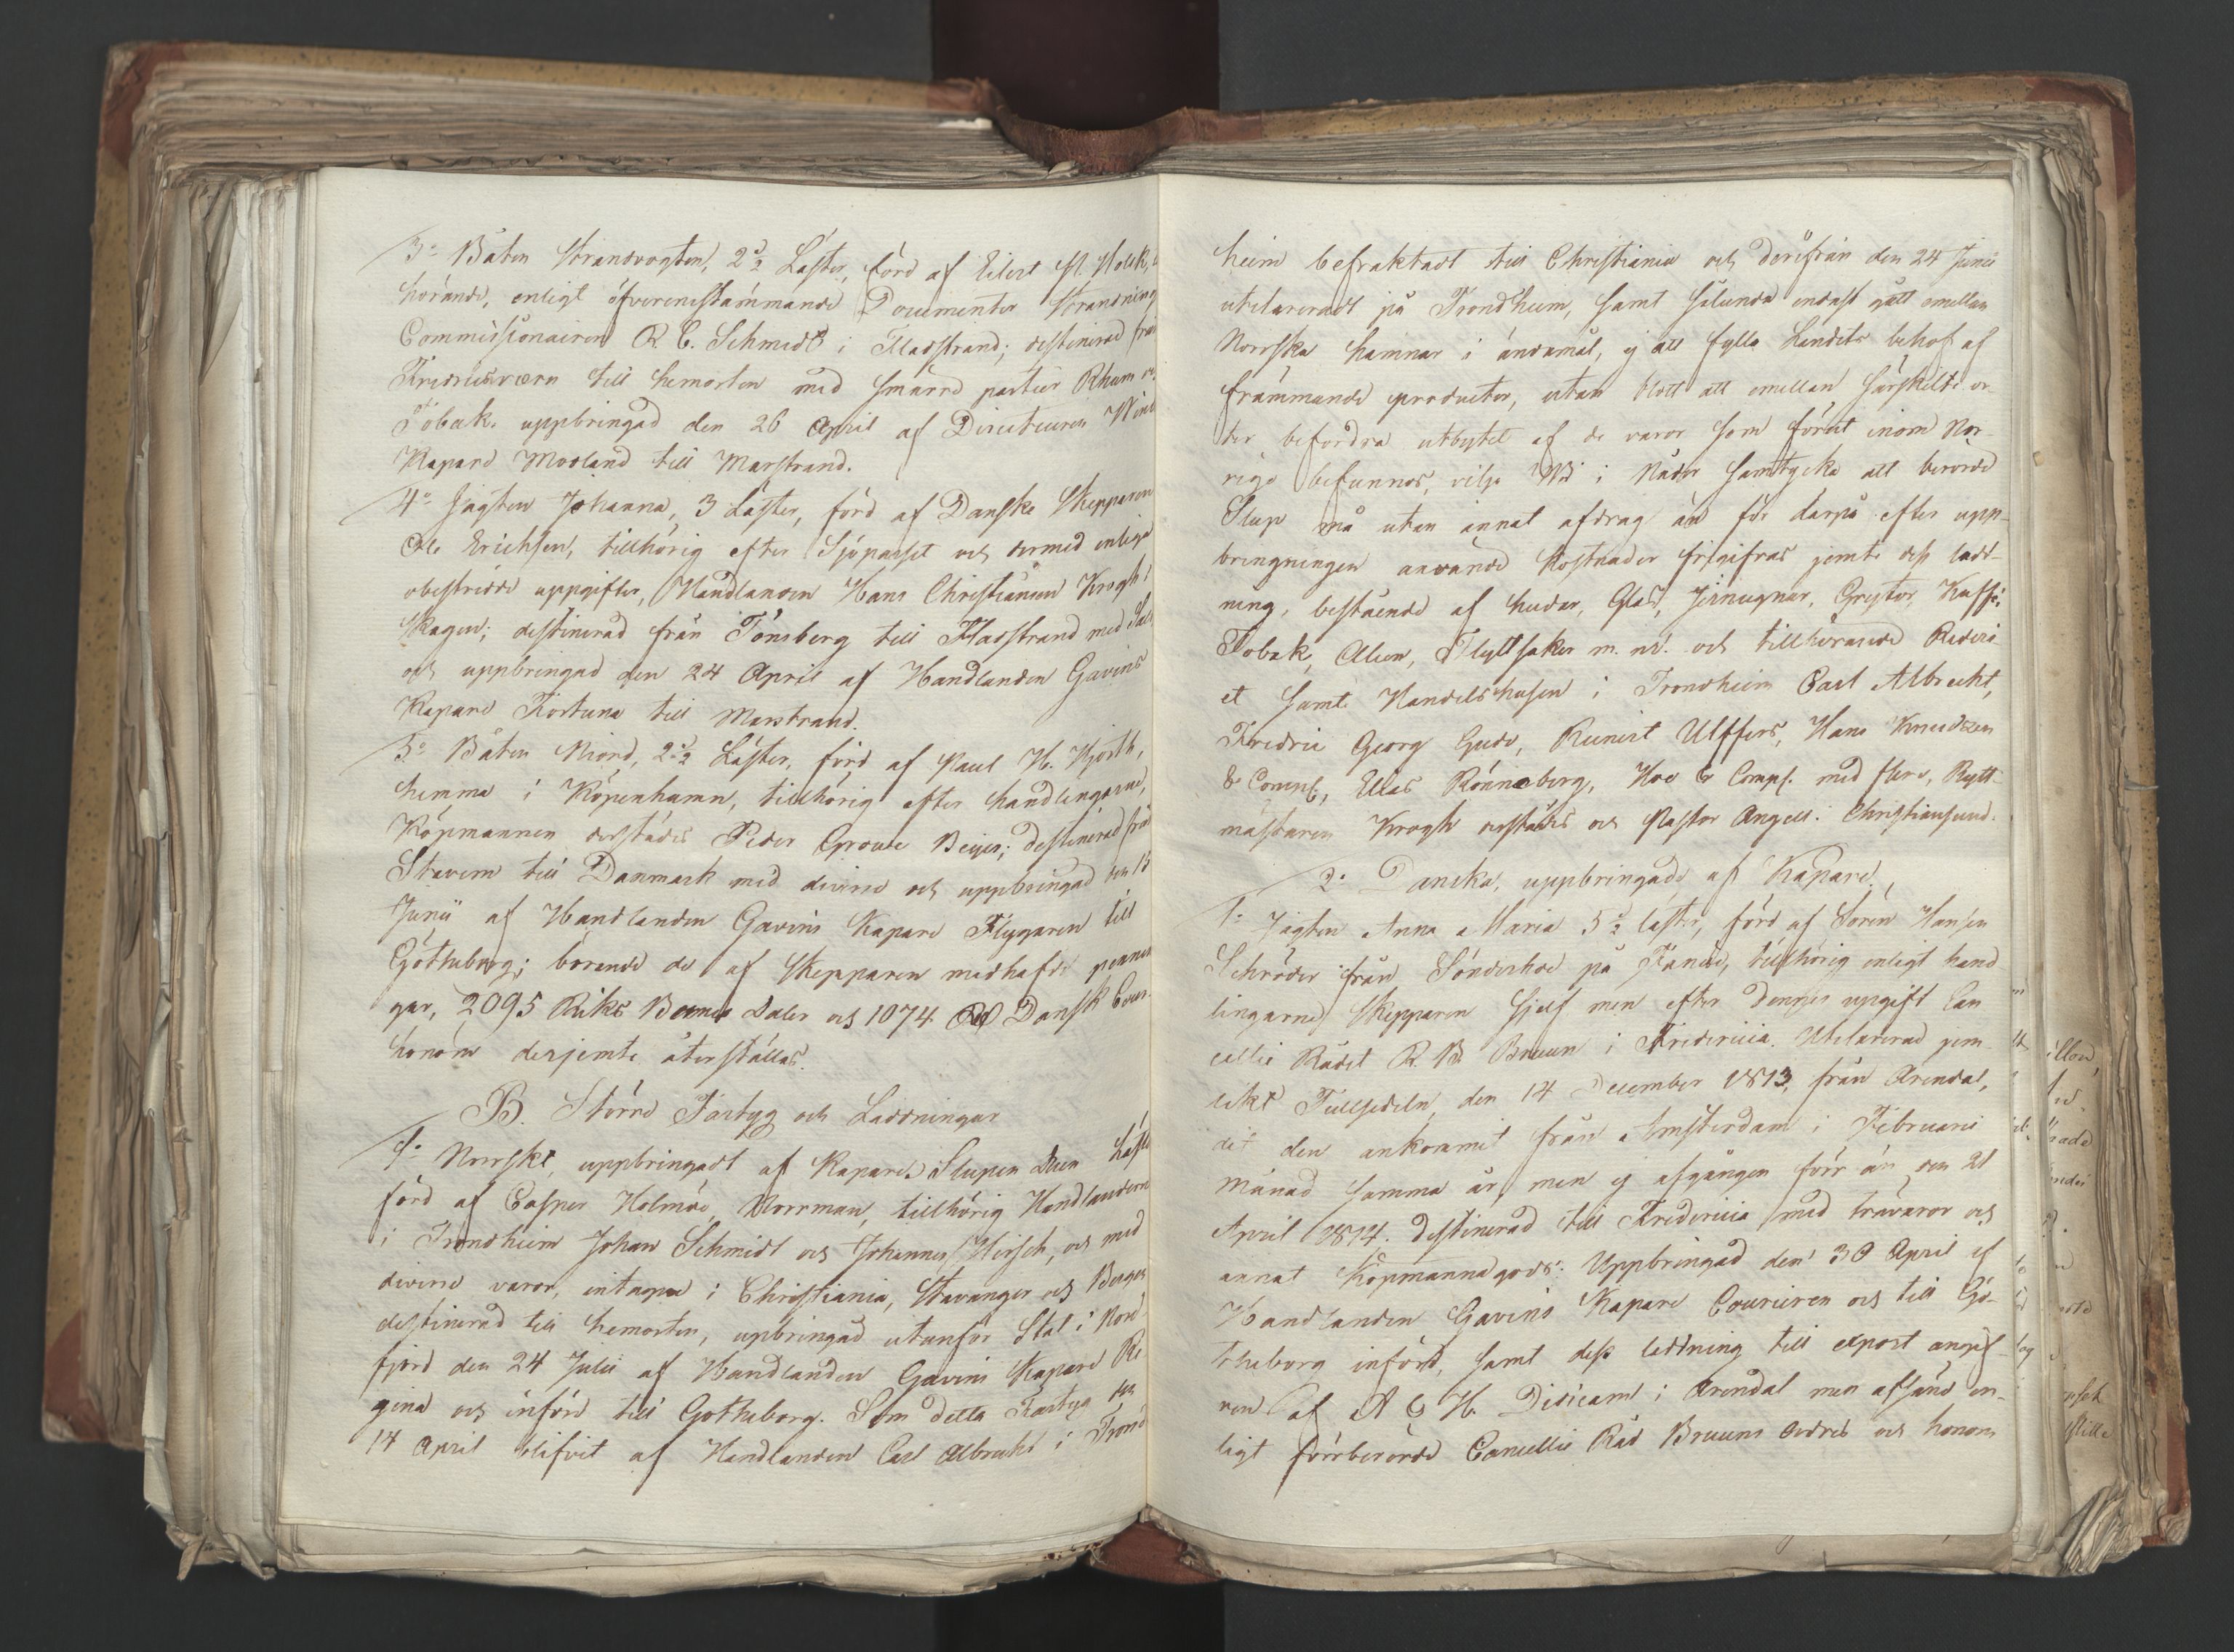 3o Båten Strandvogten, 2 1/2 Läster, förd af Eilert M. Holck,
hörande, enligt öfverenstämmande Documenter Strandning
Commissionairen R. C. Schmidt i Fladstrand; destinerad från
Fredricsværn till hemorten med smärre partier Rhum
Tobak, uppbringad den 26 April af Directeuren
Kapare Morland till Marstrand.
4o Jagten Johanna, 3 Läster, förd af Danske Skepparen
Ole Erichsen, tillhörig efter Sjöpasset och dermed enliga
obestridde uppgifter, Handlanden Hans Christiansen Krogh i
Skagen; destinerad från Tönsberg till Fladstrand med
och uppbringad den 24 April af Handlanden Gavins
Kapare Fortuna till Marstrand.
5o Båten Niord, 2 1/2 Läster, förd af Paul H. Hjorth,
hemma i Köpenhamn, tillhörig efter handlingarne,
Köpmannen derstädes Peder Groue Beyer; destinerad från
Stavern till Danmark med diverse och uppbringad den 13
Junii af Handlanden Gavins Kapare Flygaren till
Götheborg; börande de af Skepparen medhafde pennin
gar, 2095 Riks Banco Daler och 1074 Rd Dansk Cour.
honom derjemte återställas.
B. Större Fartyg och Laddningar
1o Norrskt, uppbringadt af Kapare, Slupen Läst
förd af Casper Holmöe, Norrman, tillhörig Handlanderne
i Trondheim Johan Schmidt och Johannes Hirsch, och med
diverse varor, intagne i Christiania, Stavanger och Bergen
destinerad till hemorten, upbringad utanför Stat i Nord
fjord den 24 Julii af Handlanden Gavins Kapare Re
gina och införd till Götheborg. Som detta Fartyg den
14 April blifvit af Handlanden Carl Albrecht i Trond
heim befraktadt till Christiania och derifrån den 24 Junii
utclareradt på Trondheim, samt sålunda endast gått emellan
Norrska hamnar i ändamål, ej att fylla Landets behof af
främmande producter, utan blott att emellan särskilte or
ter befordra utbytet af de varor som förut inom Nor-
rige befunnos, vilje Wi i Nåder samtycka att berörde
Slup må utan annat afdrag än för därpå efter upp-
bringningen använde kostnader frigifvas jemte dess ladd-
ning, bestående af hudar, Glas, Jernugnar, Grytor, Kaffe,
Tobak, Alun, Flyttsaker m. m. och tillhörande Rederi
et samt Handelshusen i Trondheim Carl Albrecht,
Fredric Georg Gude, Reinert Ulffers, Hans Knudtzon
& Comp:, Elias Rönneberg, Hoe & Comp:. med flere, Rytt-
mästaren Krogh derstädes och Pastor Angell i Christiansund.
2o Danska, uppbringade af Kapare.
1o Jagten Anna Maria 5 1/2 läster, förd af Sören Hansen
Schröder från Sönderhoe på Fanöe, tillhörig enligt hand
lingarne Skepparen sjelf men efter dennes upgift Can
cellie Rådet R. B. Bruun i Fredericia. Utclarerad jem
likt Tullsedeln, den 14 December 1813, från Arendal,
dit den ankommit från Amsterdam i Februarii
Månad samma år, men ej afgången förr än den 21
April 1814. destinerad till Fredericia med trävaror och
annat köpmannagods: Uppbringad den 30 April af
Handlanden Gavins Kapare Courieren och till Gö-
theborg införd, samt dess laddning till export angif-
ven af A & H. i Arendal men afsänd en-
ligt förrberörde Cancellie Råd Bruuns ordres och honom